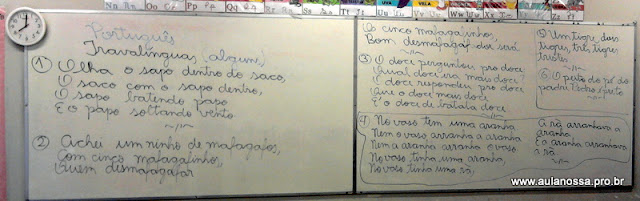 Português
Travalínguas (alguns)
1) Olha o sapo dentro do saco,
O saco com o sapo dentro,
O sapo batendo papo
E o papo soltando vento.
2) Achei um ninho de mafagafos,
Com cinco mafagafinhos,
Quem desmafagafar
Os cinco mafagafinhos,
Bom desmafagafador será.
3) O doce perguntou pro doce
Qual doce era mais doce?
O doce respondeu pro doce
Que o doce mais doce
É o doce de batata doce
4) No vaso tem uma aranha
Nem o vaso arranha a aranha
Nem a aranha arranha o vaso
No vaso tinha uma aranha,
No vaso tinha uma rã,
A rã arranhava a
aranha
E a aranha arranhava
a rã.
5) Um tigre, dois
tigres, três tigres
tristes
6) O peito do pé do
padre Pedro é preto
www.aulanossa.pro.br